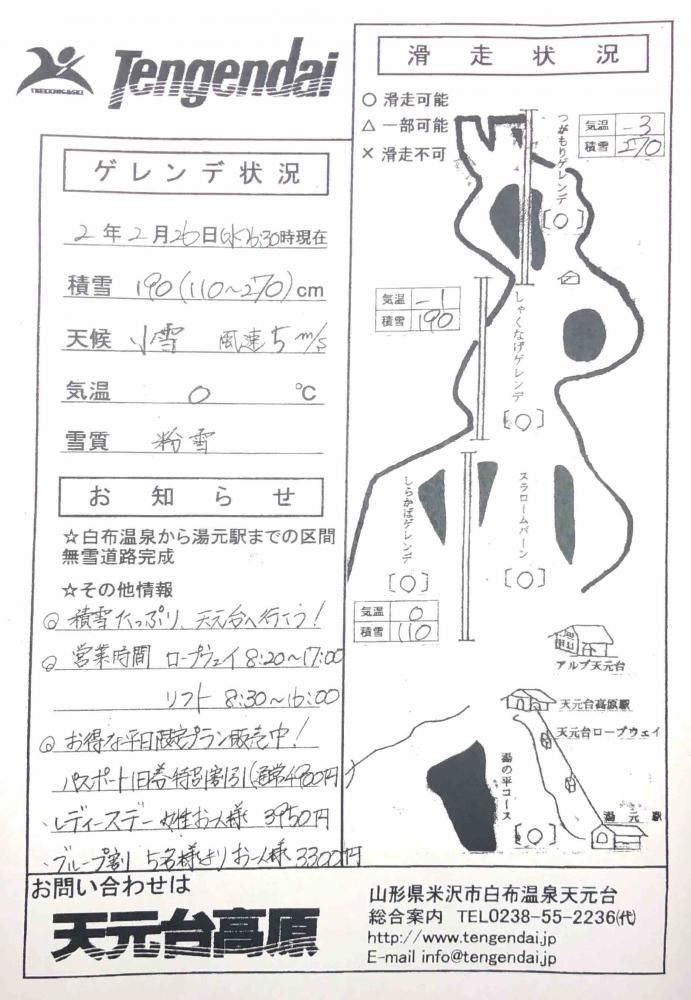 TREKKING&SKI
Tengendai
ゲレンデ状況
2年2月26日(水)6:30時現在
積雪 190(110~270)cm
天候 小雪 風速5m/s
気温 0 ℃
雪質 粉雪
お知らせ
☆白布温泉から湯元駅までの区間
無雪道路完成
☆その他情報
◎積雪たっぷり、天元台へ行こう!
◎営業時間 ロープウェイ 8:20~17:00
リフト 8:30~16:00
◎お得な平日限定プラン販売中!
パスポート1日券特別割引(通常4980円)
・レディースデー 女性お一人様 3950円
・グループ割り 5名様よりお一人様 3300円
滑走状況
○滑走可能
△一部可能
×滑走不可
気温 -3
積雪 270
つがもりゲレンデ
[○]
気温 -1
積雪 190
しゃくなげゲレンデ
[○]
しらかばゲレンデ
[○]
スラロームバーン
[○]
気温 0
積雪 110
アルブ天元台
天元台高原駅
天元台ロープウェイ
湯の平コース
[○]
湯元駅
お問い合わせは
天元台高原
山形県米沢市白布温泉天元台
総合案内 TEL0238-55-2236(代)
http://www.tengendai.jp
E-mail info@tengendai.jp